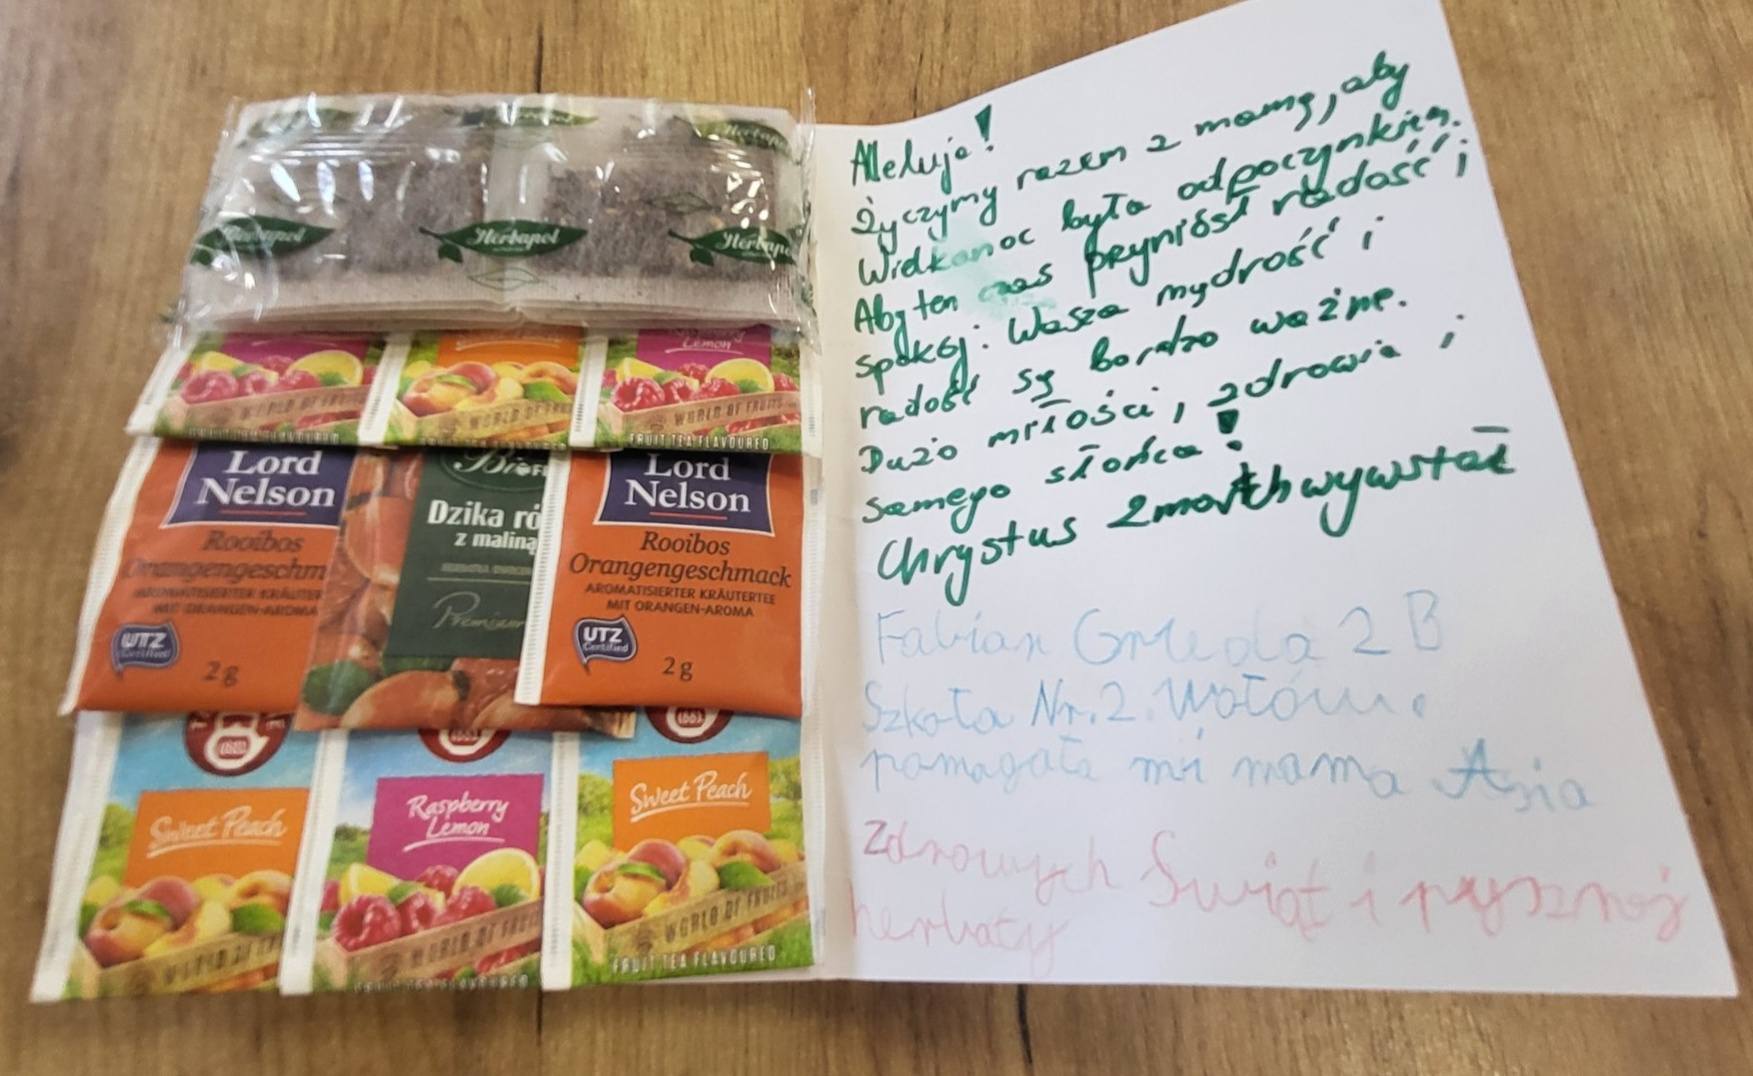 Herbapol
Herbapol
Herbapol
Lemon
WORLD OF FRUITS
WORLD OF FRUITS
WORLD OF FRUITS
FRUIT TEA FLAVOURED
FRUIT TEA FLAVOURED
FRUIT TEA FLAVOURED
Lord
Nelson
Rooibos
Orangengeschm
AROMATISIERTER KRÄUTER
MIT ORANGEN-AROMA
UTZ
Certified
2 g
Dzika ró
z maliną
Premium
Lord
Nelson
Rooibos
Orangengeschmack
AROMATISIERTER KRÄUTERTEE
MIT ORANGEN-AROMA
UTZ
Certified
2 g
Sweet Peach
WORLD OF
Raspberry
Lemon
WORLD OF FRUITS
FRUIT TEA FLAVOURED
Sweet Peach
WORLD OF FRUITS
FRUIT TEA FLAVOURED
Alleluja!
Życzymy razem z mamą, aby
Wielkanoc była odpoczynkiem.
Aby ten czas przyniósł radość i
spokój. Wasza mądrość i
radość są bardzo ważne.
Dużo miłości, zdrowia i
samego słońca!
Chrystus zmartwychwstał
Fabian 2 B
Szkoła Nr. 2. Wołów.
pomagała mi mama Asia
Zdrowych Świąt i pysznej
herbaty